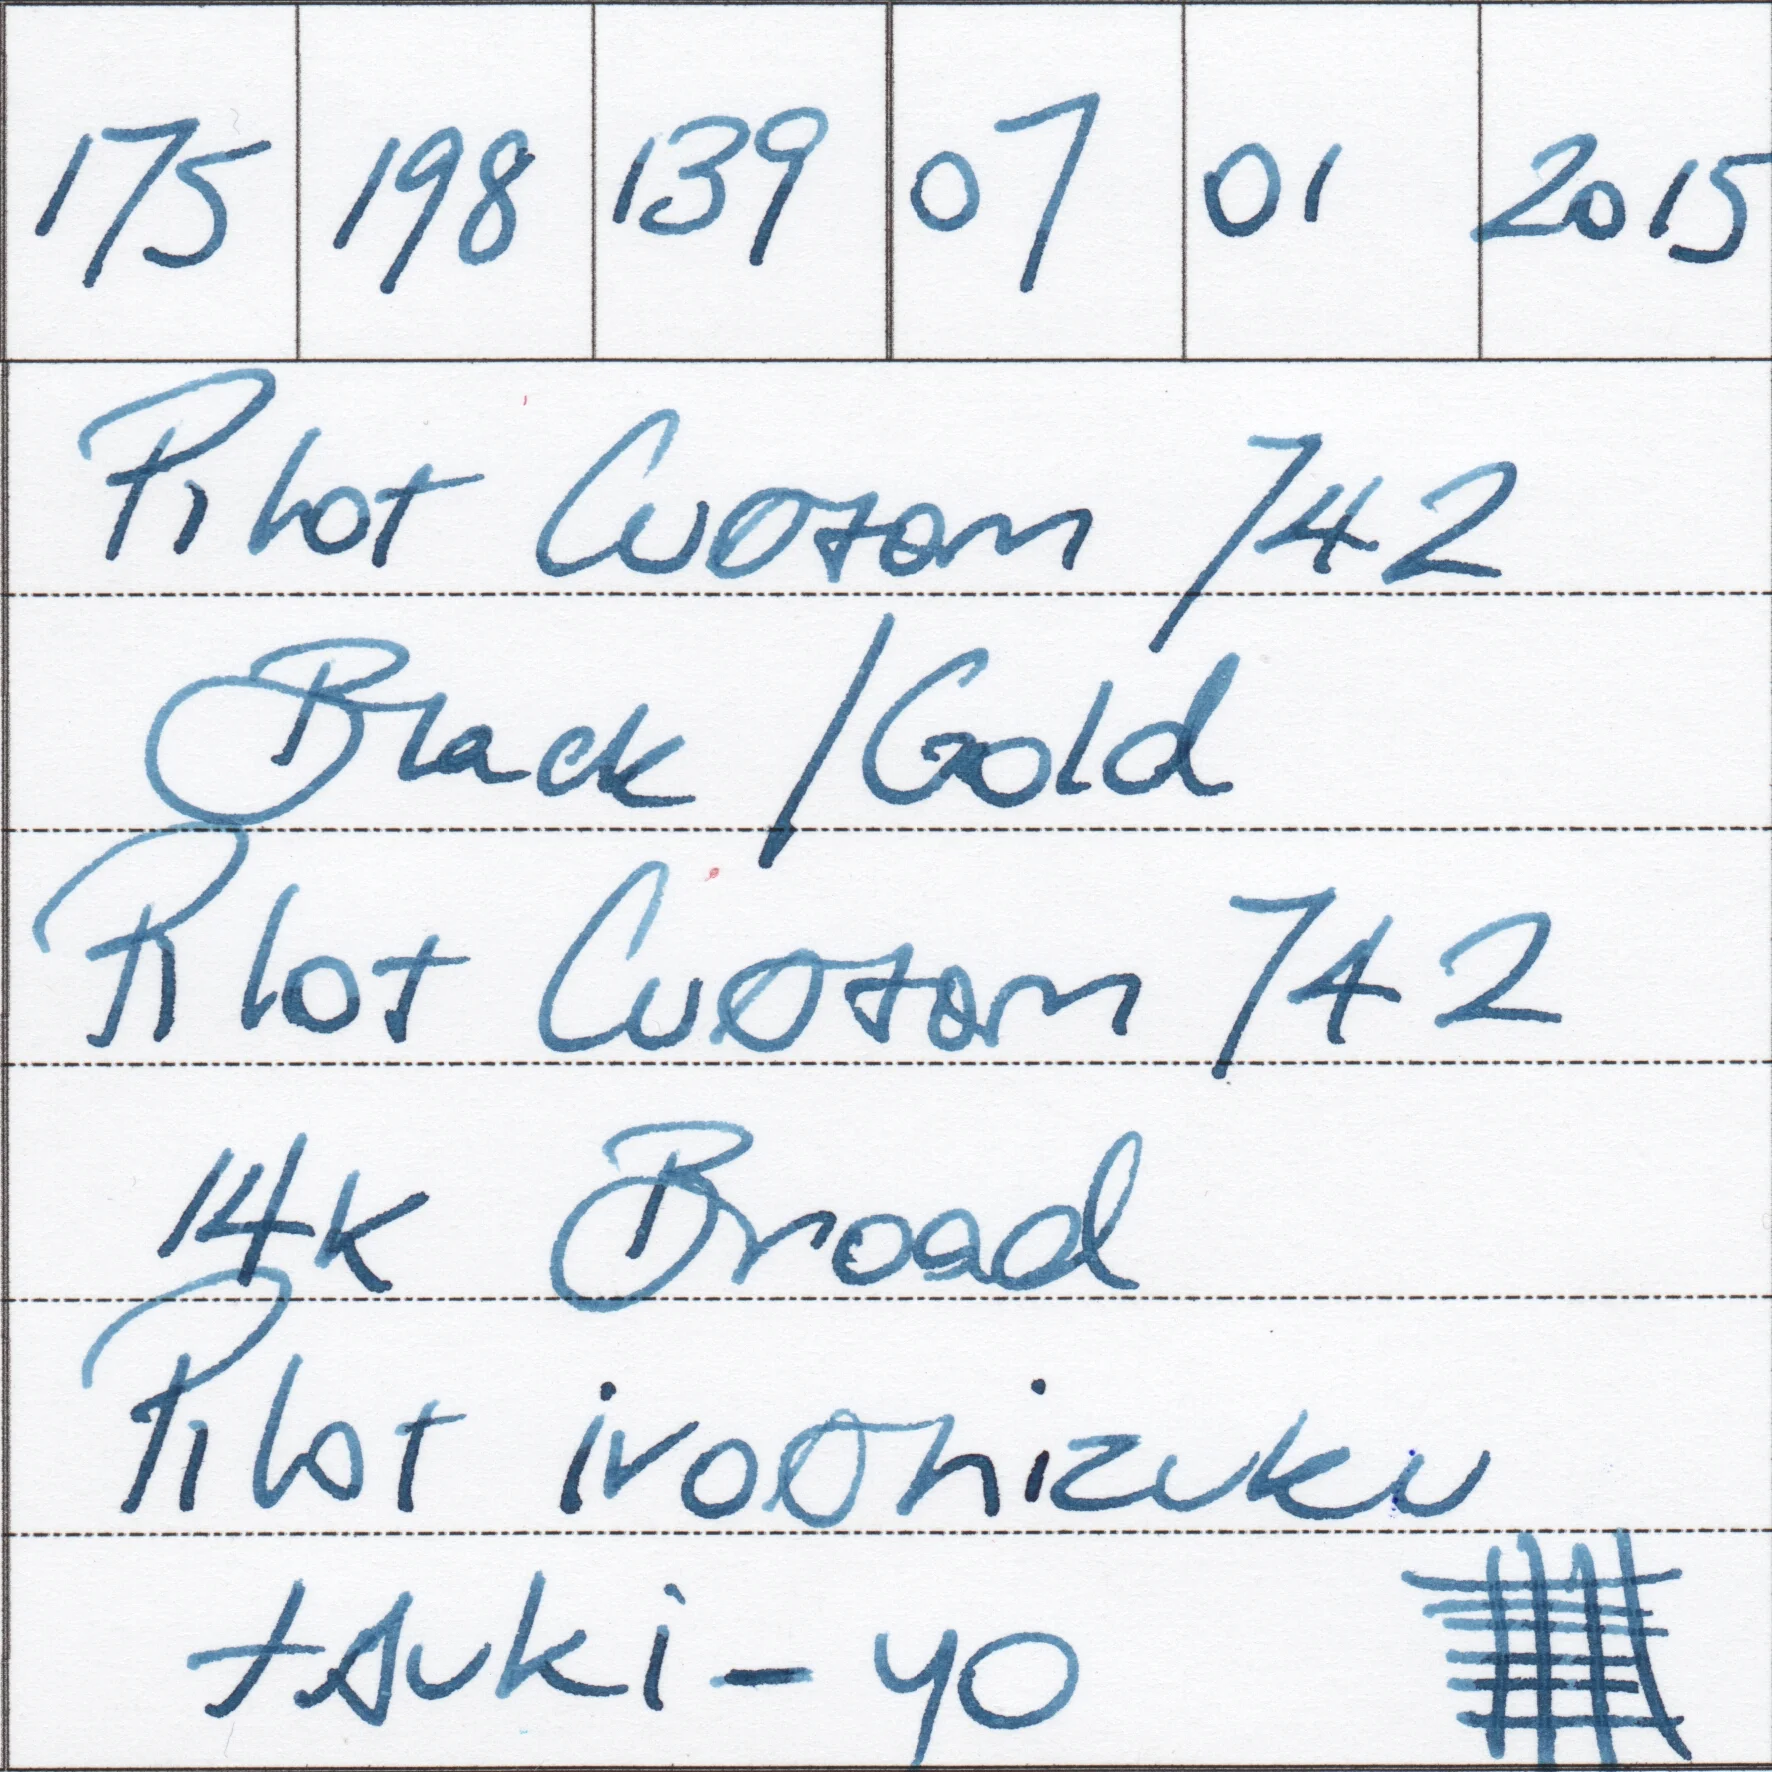 175 198 139 07 01 2015
Pilot Custom 742
Black/Gold
Pilot Custom 742
14k Broad
Pilot iroshizuku
tsuki-yo